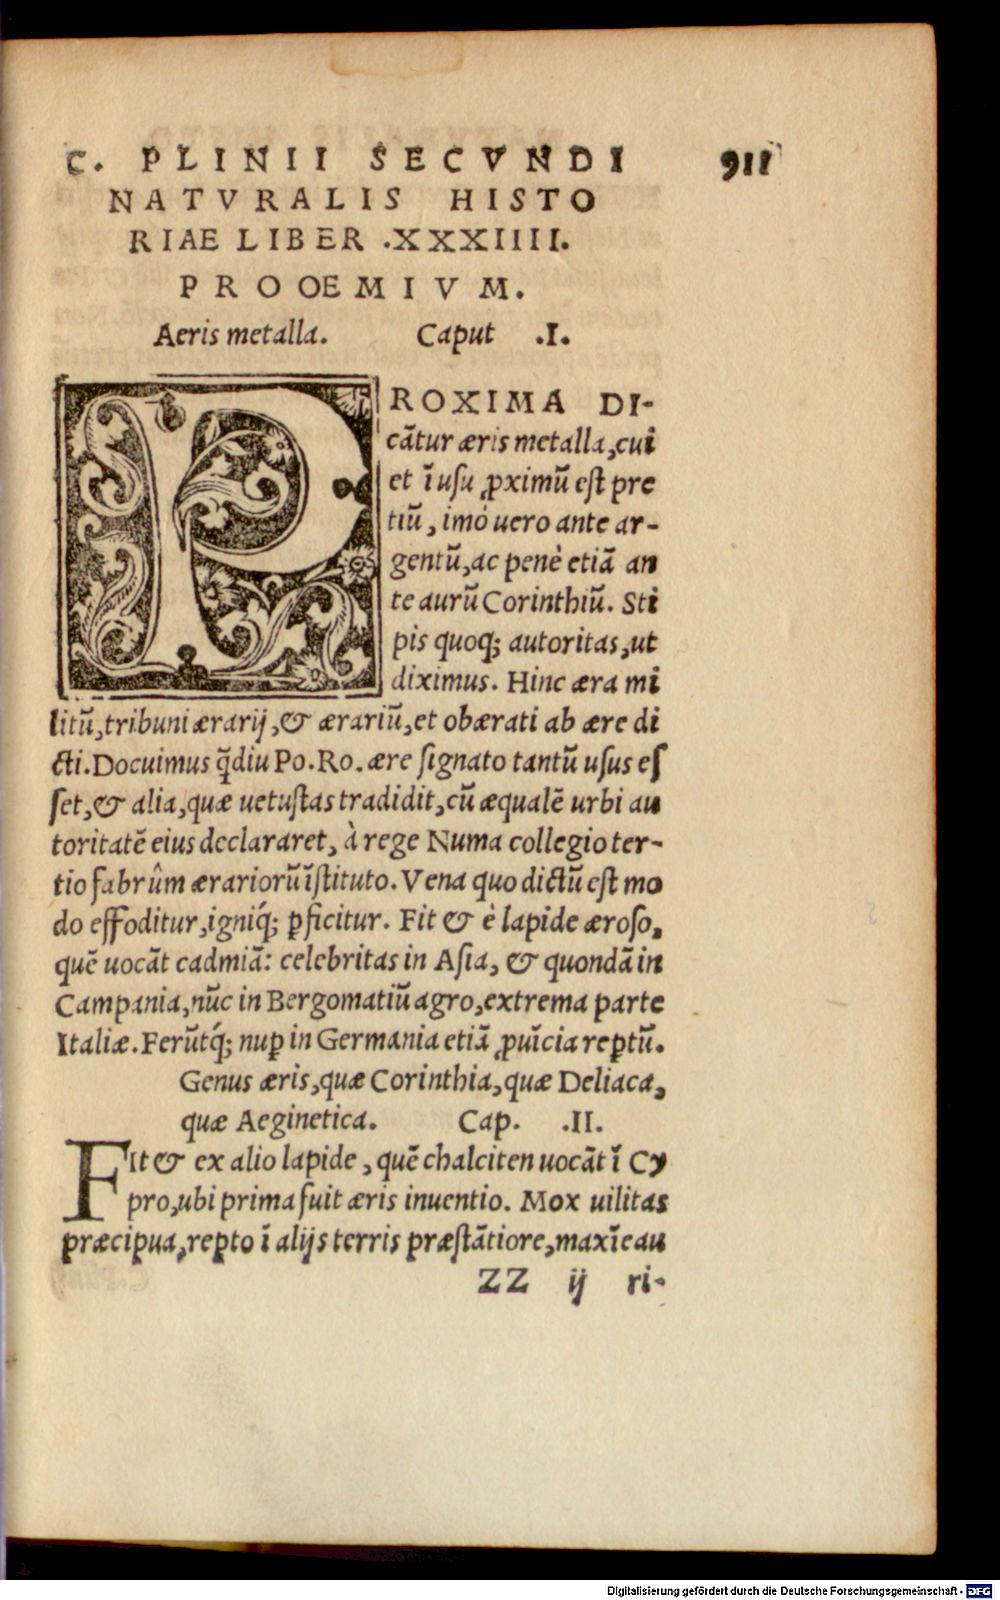 C. PLINII SECVNDI 911
NATVRALIS HISTO
RIAE LIBER .XXXIIII.
PROOEMIVM.
Aeris metalla. Caput .I.
PROXIMA DI-
cãtur æris metalla, cui
et ĩ usu ꝓximũ est pre
tiũ, imò uero ante ar-
gentũ, ac penè etiã an
te aurũ Corinthiũ. Sti
pis quoq; autoritas, ut
diximus. Hinc æra mi
litũ, tribuni ærarij, & ærariũ, et obærati ab ære di
cti. Docuimus q̃diu Po. Ro. ære signato tantũ usus es
set, & alia, quæ uetustas tradidit, cũ æqualẽ urbi au
toritatẽ eius declararet, à rege Numa collegio ter-
tio fabrûm ærariorũ ĩstituto. Vena quo dictũ est mo
do effoditur, igniq́; ꝑficitur. Fit & è lapide æroso,
quẽ uocãt cadmiã: celebritas in Asia, & quondã in
Campania, nũc in Bergomatiũ agro, extrema parte
Italiæ. Ferũtq́; nuꝑ in Germania etiã ꝓuĩcia reꝑtũ.
Genus æris, quæ Corinthia, quæ Deliaca,
quæ Aeginetica. Cap. .II.
FIt & ex alio lapide, quẽ chalciten uocãt ĩ Cy
pro, ubi prima fuit æris inuentio. Mox uilitas
præcipua, reꝑto ĩ alijs terris præstãtiore, maxĩe au
ZZ ij ri-
Digitalisierung gefördert durch die Deutsche Forschungsgemeinschaft - DFG